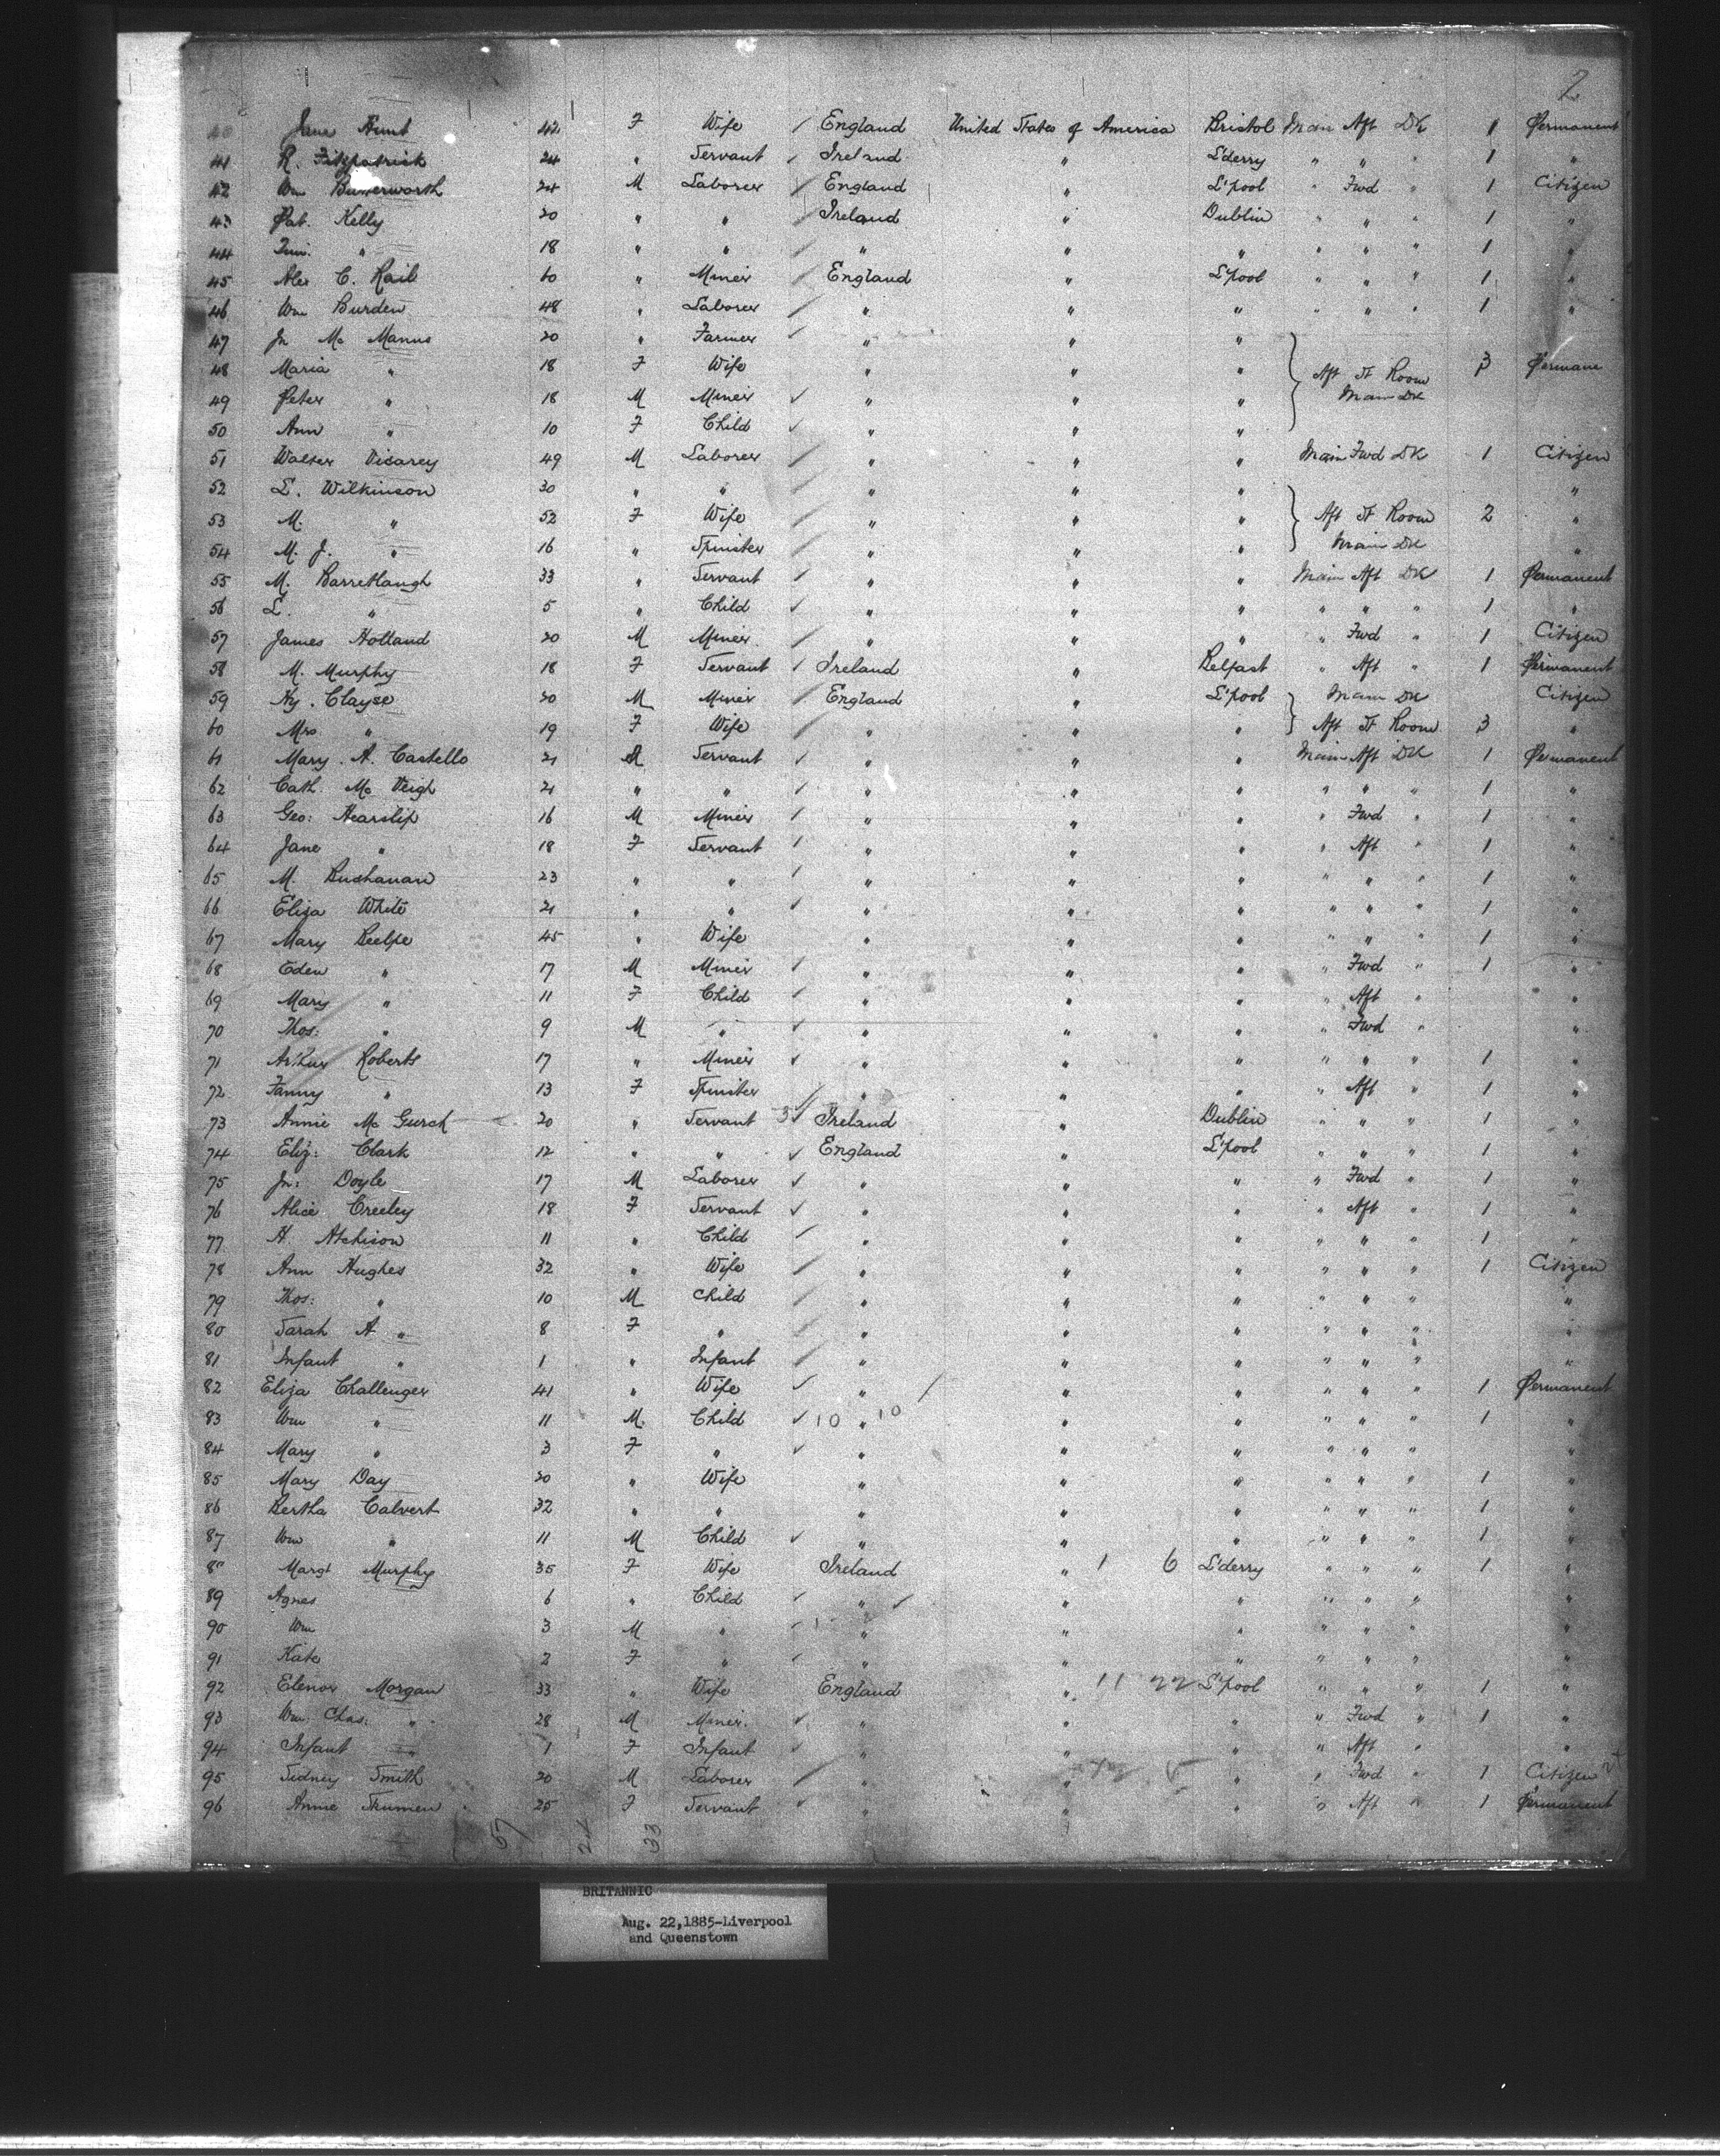 2
40 Jane Hunt 42 F Wife England United States of America Bristol Main Aft Dk 1 Permanent
41 R. Fitzpatrick 24 " Servant Ireland " L'derry " " " 1 "
42 Wm Butterworth 24 M Laborer England " L'pool " Fwd " 1 Citizen
43 Pat. Kelly 20 " " Ireland " Dublin " " " 1 "
44 " 18 " " " " " " " " 1 "
45 Alex C. Rail 60 " Miner England " L'pool " " " 1 "
46 Wm Burden 48 " Laborer " " " " " " 1 "
47 Jn Mc Manus 20 " Farmer " " "
48 Maria " 18 F Wife " " " Aft St Room 3 Permane
49 Peter " 18 M Miner " " " Main Dk
50 Ann " 10 F Child " " "
51 Walter Vicarey 49 M Laborer " " " Main Fwd Dk 1 Citizen
52 L. Wilkinson 30 " " " " " "
53 M. " 52 F Wife " " " Aft St Room 2 "
54 M. J. " 16 " Spinster " " " Main Dk "
55 M. Barretlaugh 33 " Servant " " " Main Aft Dk 1 Permanent
56 L. " 5 " Child " " " " " " 1 "
57 James Holland 20 M Miner " " " " Fwd " 1 Citizen
58 M. Murphy 18 F Servant Ireland " Belfast " Aft " 1 Permanent
59 Hy. Clayse 20 M Miner England " L'pool Main Dk Citizen
60 Mrs. " 19 F Wife " " " Aft St Room 3 "
61 Mary A. Castello 21 Servant " " " Main Aft Dk 1 Permanent
62 Cath. Mc Veigh 21 " " " " " " " " 1 "
63 Geo: Hearslip 16 M Miner " " " " Fwd " 1 "
64 Jane " 18 F Servant " " " " Aft " 1 "
65 M. Buchanan 23 " " " " " " " " 1 "
66 Eliza White 21 " " " " " " " " 1 "
67 Mary Beelpe 45 " Wife " " " " " " 1 "
68 Eden " 17 M Miner " " " " Fwd " 1 "
69 Mary " 11 F Child " " " " Aft " "
70 Thos: " 9 M " " " " " Fwd " "
71 Arthur Roberts 17 " Miner " " " " " " 1 "
72 Fanny " 13 F Spinster " " " " Aft " 1 "
73 Annie Mc Gurck 20 " Servant 3 Ireland " Dublin " " " 1 "
74 Eliz: Clark 12 " " England " L'pool " " " 1 "
75 Jn: Doyle 17 M Laborer " " " " Fwd " 1 "
76 Alice Creeley 18 F Servant " " " " Aft " 1 "
77 H. Atchison 11 " Child " " " " " " 1 "
78 Ann Hughes 32 " Wife " " " " " " 1 Citizen
79 Thos: " 10 M Child " " " " " " "
80 Sarah A " 8 F " " " " " " " "
81 Infant " 1 " Infant " " " " " " "
82 Eliza Challenger 41 " Wife " " " " " " 1 Permanent
83 Wm " 11 M. Child 10 " 10 " " " " " 1 "
84 Mary " 3 F " " " " " " " "
85 Mary Day 20 " Wife " " " " " " 1 "
86 Bertha Calvert 32 " " " " " " " " 1 "
87 Wm " 11 M Child " " " " " " 1 "
88 Margt Murphy 35 F Wife Ireland " 1 6 L'derry " " " 1 "
89 Agnes 6 " Child " " " " " " "
90 Wm 3 M " " " " " " " "
91 Kate 2 F " " " " " " " "
92 Elenor Morgan 33 " Wife England " 11 22 L'pool " " " 1 "
93 Wm. Chas. " 28 M Miner. " " " " Fwd " 1 "
94 Infant " 1 F Infant " " " " Aft " "
95 Sidney Smith 20 M Laborer " " " " Fwd " 1 Citizen
96 Annie Skumen 25 F Servant " " " " Aft " 1 Permanent
57 24 33
BRITANNIC
Aug. 22,1885-Liverpool
and Queenstown